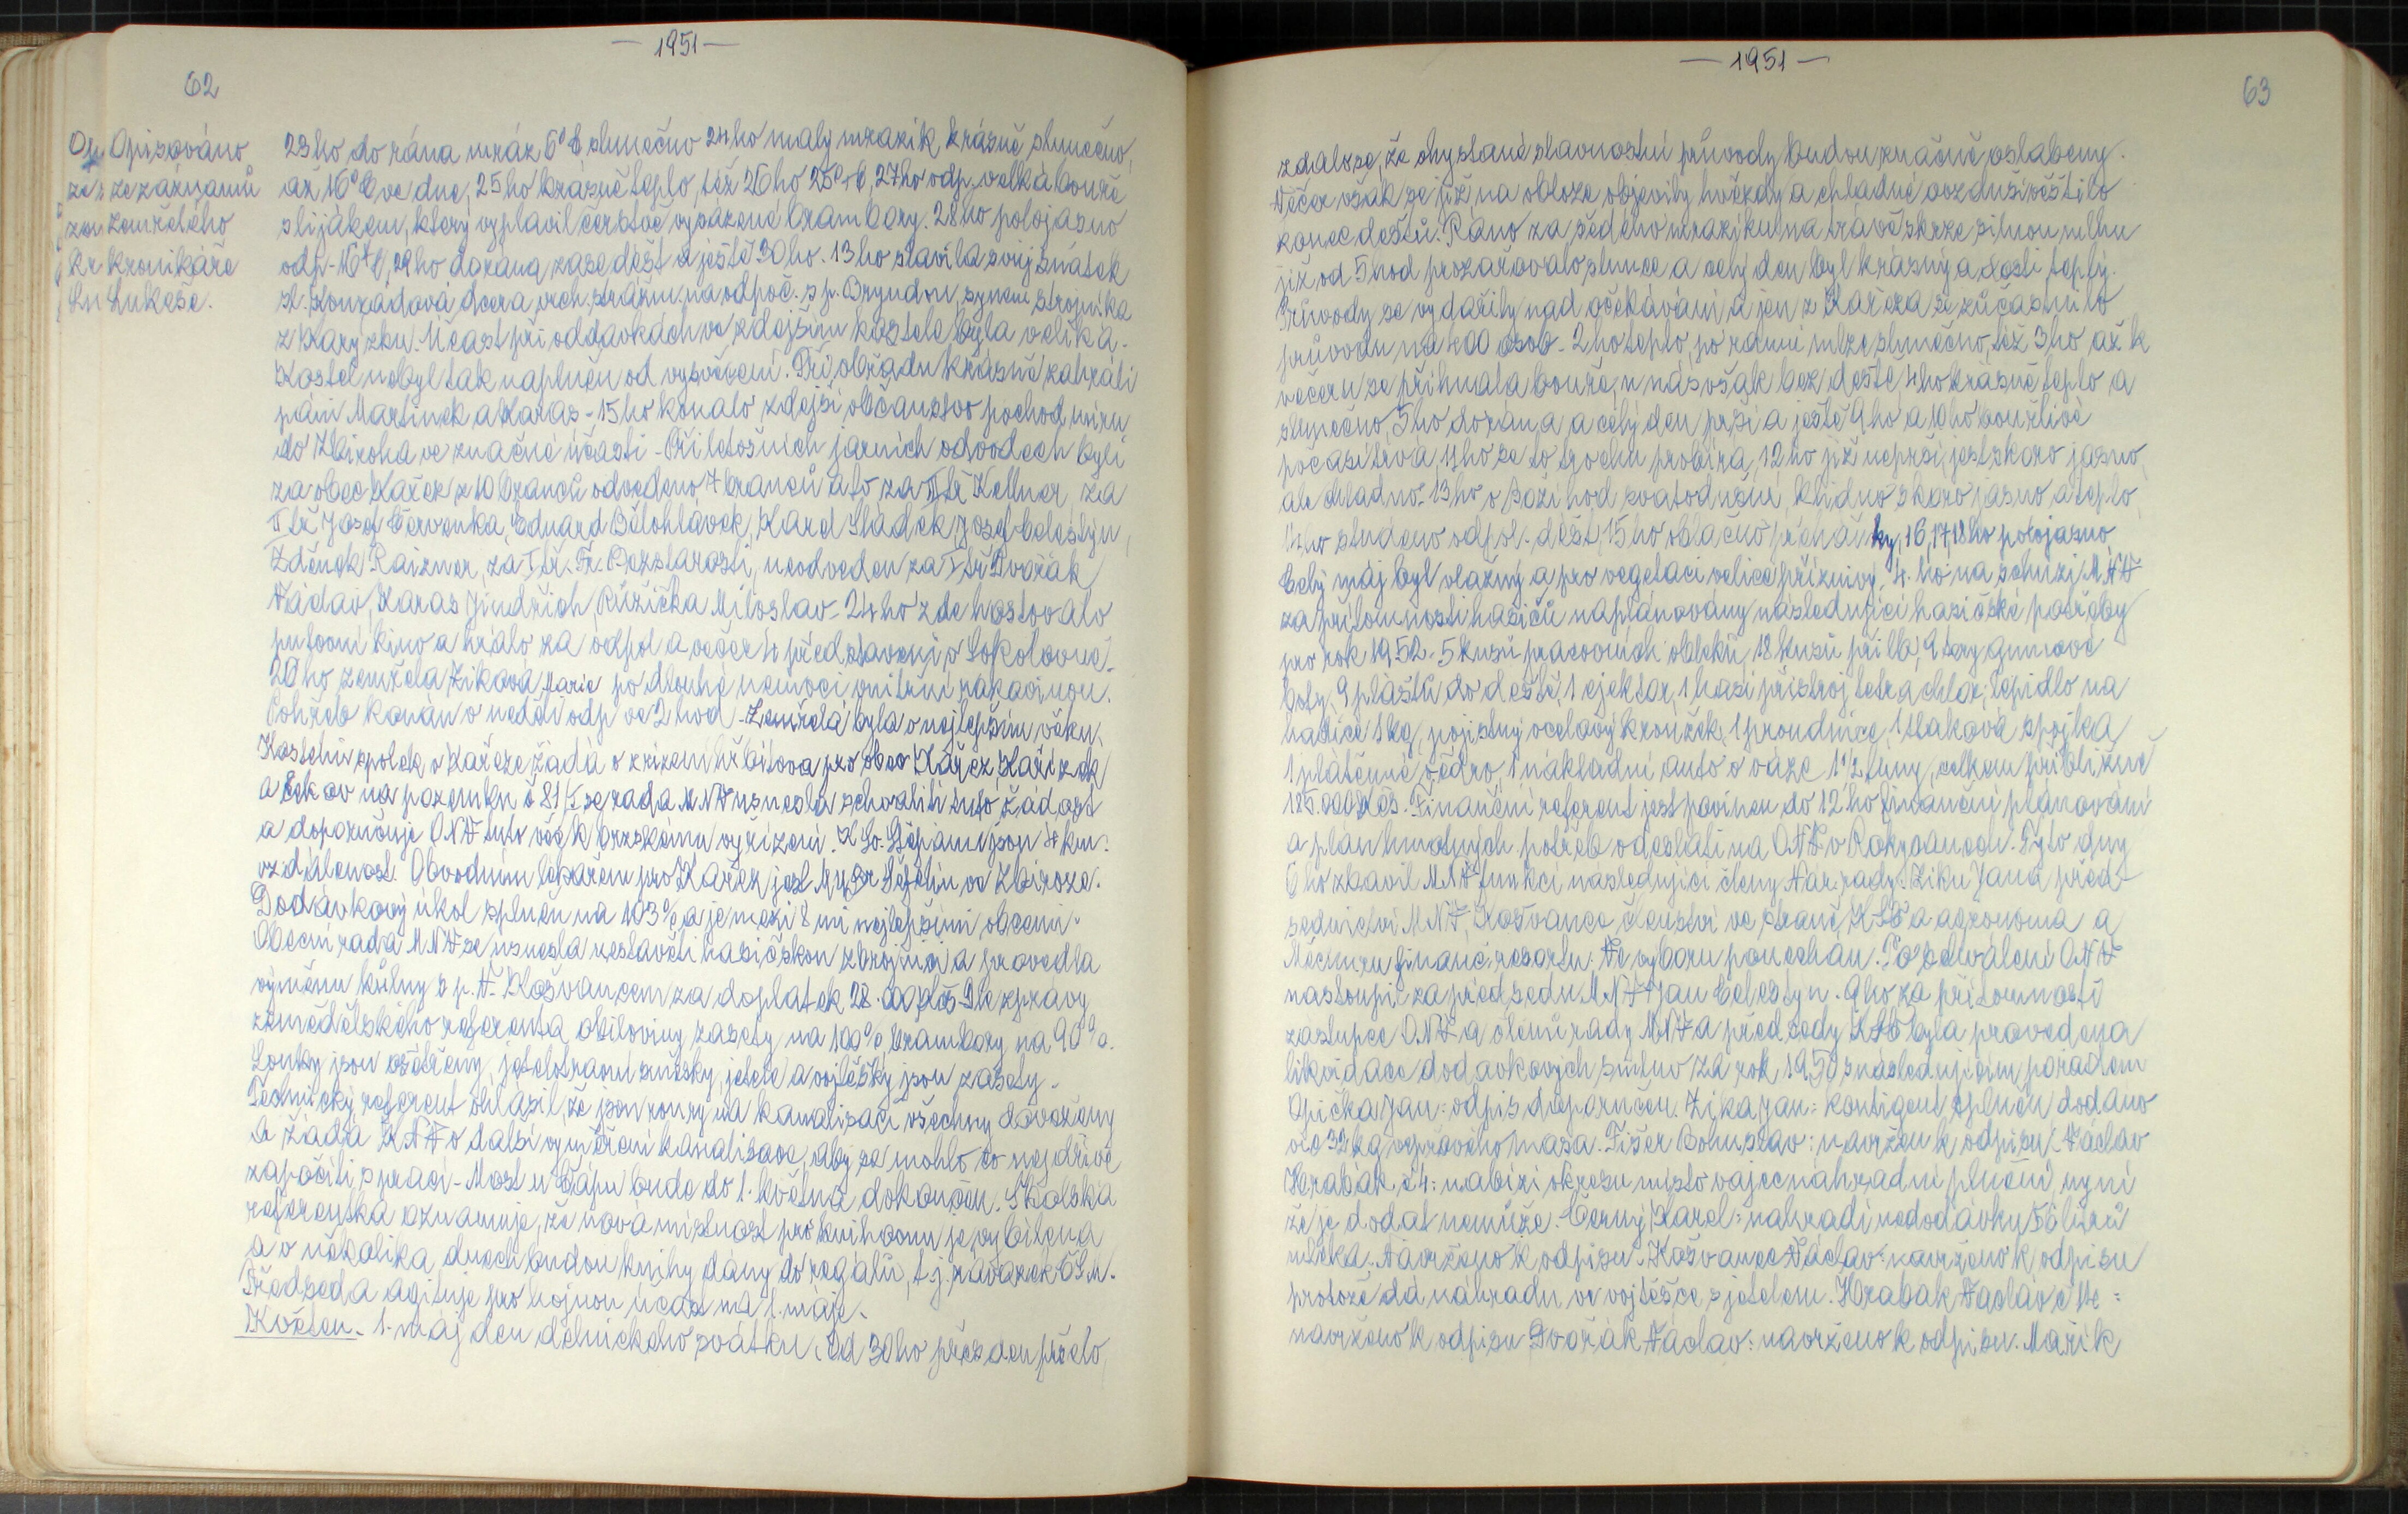 — 1951 —
62
Opisováno
ze záznamů
zemřelého
kronikáře
Lukeše.
23ho do rána mráz 6°C slunečno 24ho malý mrazík, krásně slunečno,
až 16°C ve dne, 25ho krásně teplo, též 26ho 25°C, 27ho odp. velká bouře
s lijákem, který vyplavil čerstvě vysázené brambory. 28ho polojasno
odp. 16°C, 29ho do rána zase déšť a ještě 30ho. 13ho slavila svůj sňatek
sl. Konrádová dcera vrch. strážm. na odpoč. s p. Bryndou, synem strojníka
z Karýzku. Účast při oddavkách ve zdejším kostele byla veliká.
Kostel nebyl tak naplněn od vysvěcení. Při obřadu krásně zahráli
páni Martínek a Karas - 15ho konalo zdejší občanstvo pochod míru
do Zbiroha ve značné účasti - Při letošních jarních odvodech byli
za obec Kařez z 10 branců odvedeno 7 branců a to za III tř Kellner, za
II tř Josef Červenka, Eduard Bělohlávek, Karel Sládek, Josef Celestýn,
Zdeněk Raizner, za I tř. Fr. Bezstarosti, neodveden za I tř Dvořák
Václav, Karas Jindřich, Růžička Miloslav - 24ho zde hostovalo
putovní kino a hrálo za odpol a večer 4 představení v Sokolovně.
20ho zemřela Zíková Marie po dlouhé nemoci vnitřní rakovinou.
Pohřeb konán v neděli odp ve 2 hod - Zemřelá byla v nejlepším věku.
Kostelní spolek v Kařeze žádá o zřízení hřbitova pro obec Kařez Kařízek
a Čekov na pozemku č 81/I se rada MNV usnesla schváliti tuto žádost
a doporučuje ONV tuto věc k brzskému vyřízení. K Sv. Štěpánu jsou 4 km.
vzdálenost. Obvodním lékařem pro Kařez jest MUDr Šefelín ve Zbiroze.
Dodávkový úkol splněn na 103% a je mezi 8 mi nejlepšími obcemi.
Obecní rada MNV se usnesla nestavěti hasičskou zbrojnici a provedla
výměnu kůlny s p. V. Košvancem za doplatek 28.000 Kčs Dle zprávy
zemědělského referenta obiloviny zasety na 100%, brambory na 90%.
Louky jsou ošetřeny, jetelotravní směsky, jetele a vojtěšky jsou zasety -
Technický referent ohlásil, že jsou roury na kanalisaci všechny dovezeny
a žádá KNV o další vyměření kanalisace, aby se mohlo co nejdříve
započíti s prací - Most u Čápů bude do 1. května dokončen. Školská
referentka oznamuje, že nová místnost pro knihovnu je vybílena
a v několika dnech budou knihy dány do regálů, t.j. závazek ČSM.
Předseda agituje pro hojnou účast na 1. máje.
Květen. 1. máj den dělnického svátku. Od 30ho přes den pršelo,
— 1951 —
63
zdálo se, že chystané slavnostní průvody budou značně oslabeny.
Večer však se již na obloze objevily hvězdy a chladné ovzduší věštilo
konec dešťů. Ráno za šedého mrazíku na trávě skrze silnou mlhu
již od 5 hod prozařovalo slunce a celý den byl krásný a dosti teplý.
Průvody se vydařily nad očekávání a jen z Kařeza se zúčastnilo
průvodu na 400 osob - 2ho teplo, po ranní mlze slunečno, též 3ho až k
večeru se přihnala bouře, u nás však bez deště, 4ho krásně teplo a
slunečno, 5ho do rána a celý den prší a ještě 9ho a 10ho bouřlivé
počasí trvá, 11ho se to trochu probírá, 12ho již neprší, jest skoro jasno,
ale chladno. 13ho o Boží hod svatodušní, klidno skoro jasno a teplo,
14ho studeno odpol. déšť, 15ho oblačno přeháňky, 16, 17, 18ho polojasno
Celý máj byl vlažný a pro vegetaci velice příznivý. 4. ho na schůzi MNV
za přítomnosti hasičů naplánovány následující hasičské potřeby
pro rok 1952. 5 kusů pracovních obleků, 18 kusů přilb, 9 páry gumové
boty, 9 plášťů do deště, 1 ejektor, 1 hasí přístroj tetrachlor, lepidlo na
hadice 1 kg, pojistný ocelový kroužek, 1 proudnice, 1 tlaková spojka,
1 plátěné vědro, 1 nákladní auto o váze 1 1/2 tuny, celkem přibližně
185.000 Kčs. Finanční referent jest povinen do 12ho finanční plánování
a plán hmotných potřeb odeslati na ONV v Rokycanech. Tyto dny
6ho zbavil MNV funkcí následující členy Nár. rady: Ziku Jana před-
sednictví MNV, Košvance členství ve straně KSČ a agronoma a
Mecnera financ. resortu. Ve výboru ponechán. Po schválení ONV
nastoupil za předsedu MNV Jan Celestýn. 9ho za přítomnosti
zástupce ONV a členů rady MNV a předsedy KSČ byla provedena
likvidace dodávkových smluv za rok 1950 s následujícím pořadem
Opička Jan: odpis doporučen. Zika Jan: kontigent splněn dodáno
více 32 kg vepřového masa. Fišer Bohuslav: navržen k odpisu. Václav
Hrabák č 4: nabízí okresu místo vajec náhradní plnění, nyní
že je dodat nemůže. Černý Karel: nahradí nedodávku 56 litrů
mléka. Navrženo k odpisu. Košvanec Václav: navrženo k odpisu
protože dá náhradu ve vojtěšce s jetelem. Hrabák Václav č 44 =
navrženo k odpisu Dvořák Václav: navrženo k odpisu. Mařík